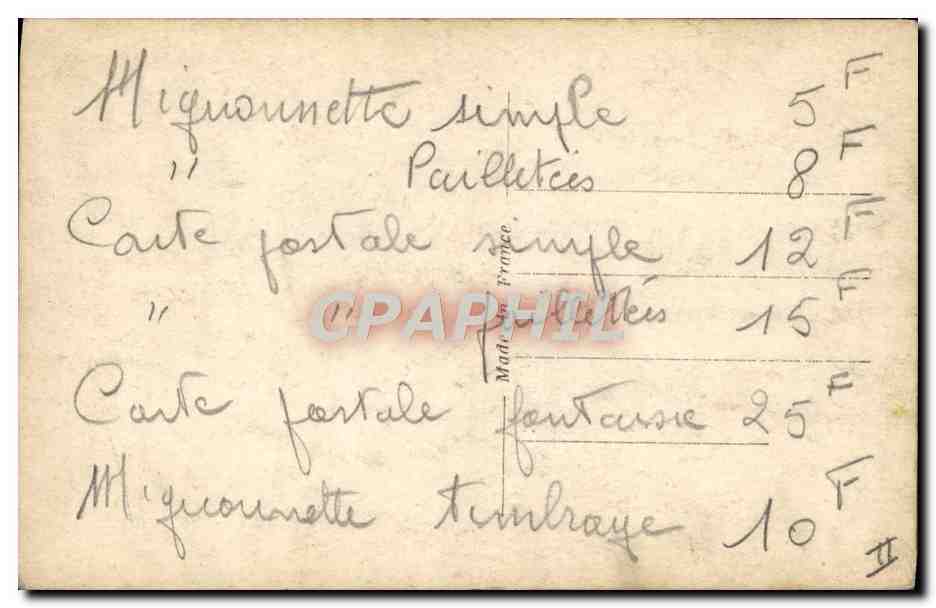 Mignonnette simple 5F
" Pailletées 8F
Carte postale simple 12F
" " pailletées 15F
Carte postale fantaisie 25F
Mignonnette timbrage 10F
II
Made in France.
CPAPHIL